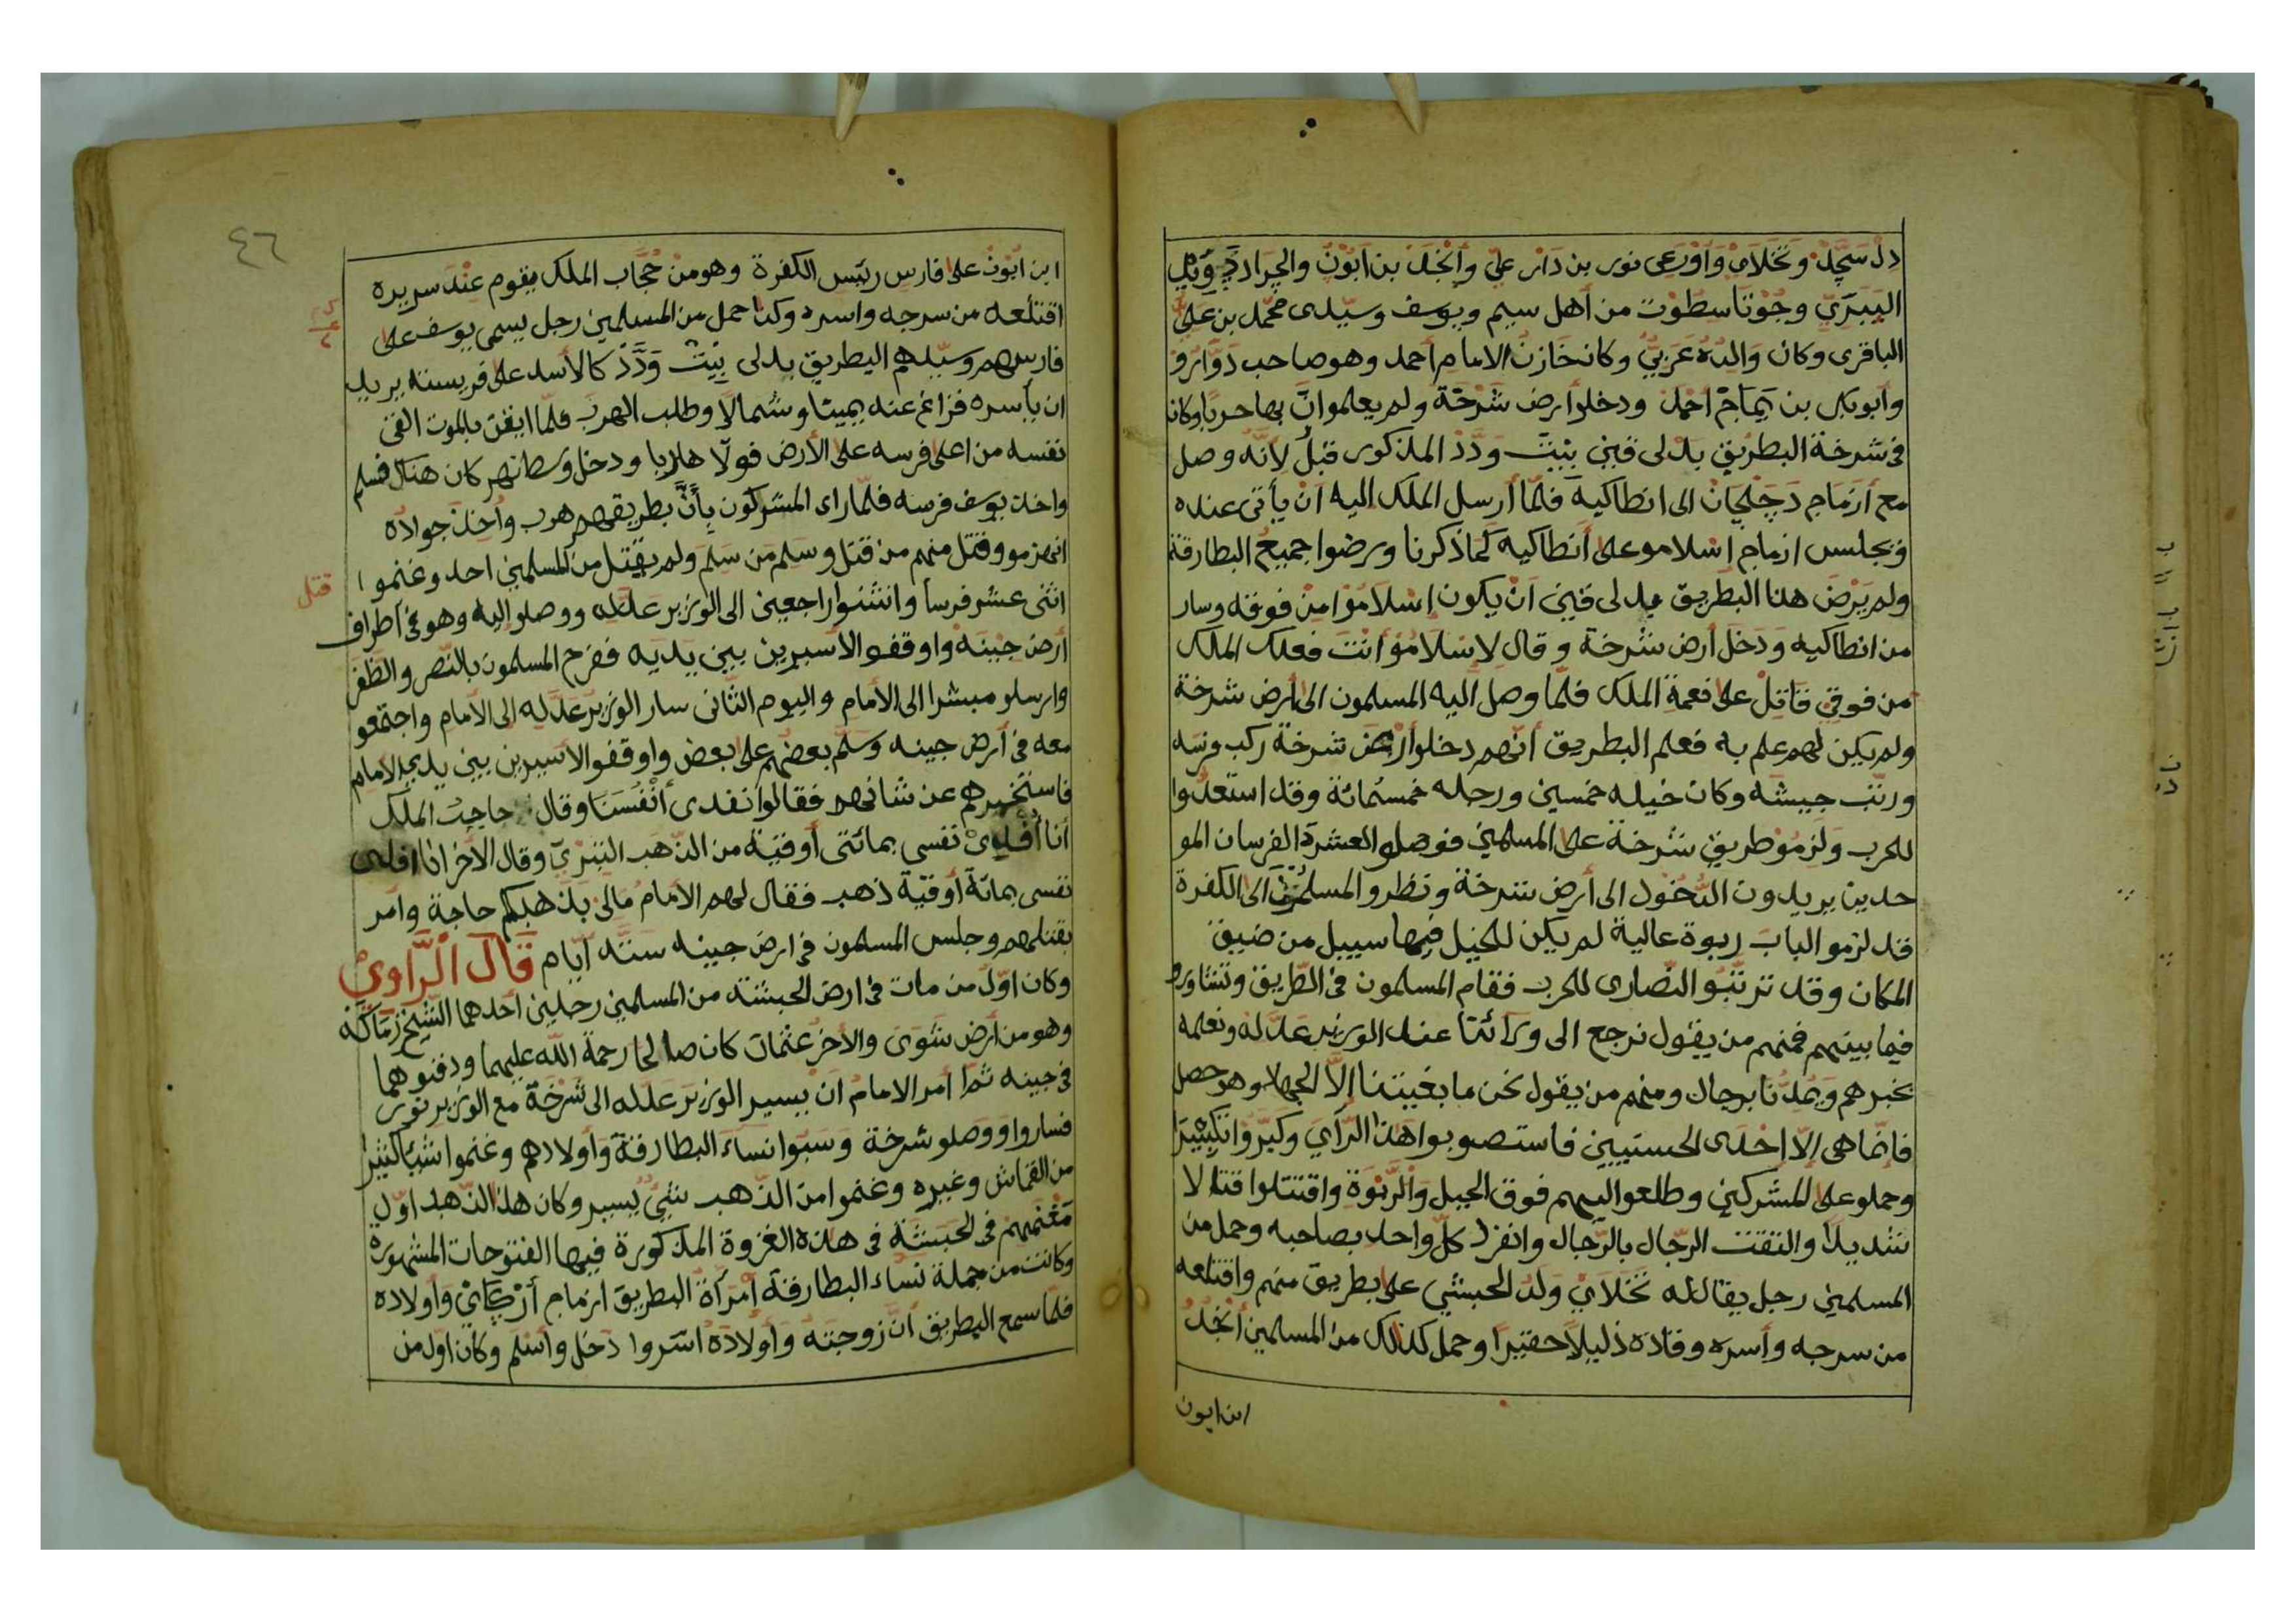 دل سَجَدْ وتَخَلاىْ وَأَوْرَعِى نور بن دَارْ عليّ وأَنْجَدْ بن اَبُوْنْ والجَرَاد
اليَبَرِيّ وجُوْتَا سطُوْت من أهل سيم ويوسف وسيّدى محمّد بن علىّ
الباقرى وكان وَالِدُه عَرَبِيٌّ وكان خازنُ الامام أحمد وهو صاحب
وأبوبكر بن يَمَاجْ احمد ودخلوا أرض شَرْخَة ولم يعلموا انَّ بها حربا وكان
فى شرخة البطريق بَدْلى وَدَّدْ المذكور قبْلُ لِاَنّه وصل
مع أَزْمَاجِ دَجَلْحَانْ الى انطاكية فلمّا أرسل الملك اليه اَنْ يأتى عنده
ويجلس ازماج اسلامو على أَنطاكيه كَمَا ذكرنا ورضوا جميعُ البطارقة
ولم يَرْضَ هذا البطريق بدلى اَنْ يكون إِسْلَامُوْا مِنْ فوقه وسار
من انطاكيه وَدَخَلَ أرض شرخة وقال لإسْلَامُوْ أنتَ فعلك الملك
من فوقي قَاتِلْ على نعمة الملك فلمّا وصل اليه المسلمون الى أرض شرخة
ولم يكن لهم علم به فعلم البطريق أنّهم دخلوا أرض شرخة ركب فرسَه
ورتّب جيشَه وكان خيله خمسين ورجله خمسُمائة وقد استعدّوا
للحرب ولَزِمُوْ طريق شرخة على المسلمين فوصلو العشرة الفرسان المو
حدين يريدون الدُّخُول الى أرض شرخة ونظرو المسلمُوْن الى الكفرة
قد لزمو البابَ ربوة عالية لم يكن للخيل فيها سبيل من ضيق
المكان وقد تَرَتّبُو النصارى للحرب فقام المسلمون فى الطّريق وتشاورو
فيما بينهم فمنهم من يقول نرجع الى وَرَائنَا عند الوزير عَدَّله ونعلمه
بخبرهم وَيمُدُّنا برجال ومنهم من يقول نحن ما بغيتنا إلَّا الجهاد وهو حصل
فإنّما هى إلّا إحْدَى الحسنيين فاستصوبوا هذا الرَّأيَ وَكَبَّرُوا تكبيْرًا
وحملو على المشركين وطلعوا اليهم فوق الجبل والرّبْوَة واقتتلوا قتالا
شديدًا والتقت الرّجال بالرّجال وانفرد كلّ واحد بصاحبه وحمل من
المسلمين رجل يقال له تَخَلَايْ وَلَدُ الحبشي على بطريق منهم واقتلعه
من سرجه وأسره وقادَه ذليلًا حقيرًا وحمل كذلك من المسلمين أنْجَدْ
ابن ابون
٤٦
ابن ابُوْنْ على فارس رئيس الكفرة وهو منْ حُجَّاب الملك يقوم عِنْدَ سريره
اقتلعه من سرجه واسره وكذا حمل من المسلمين رجل يسمى يوسف على
فارسهم وسيّدهم البطريق بدلى وَدَّدْ كالأسد على فريسته يريد
ان يأسره فزاغ عنه يمينًا وشمالًا وطلب الهرب فلمّا ايقن بالموت القى
نفسه من اعلى فرسه على الأرض فولّا هاربا ودخل وكان هناك فسلم
واخذ يوسف فرسه فلمّا راء المشركون بأنّ بطريقهم هرب وأخذ جوادُه
انهزمو وقتل منهم من قتل وسلم مَن سَلِمَ ولم يقتل من المسلمين احد وغنموا
قتل
اثنى عشر فرساً وانثنوا راجعين الى الوزير عَدَّله ووصلو اليه وهو فى أطراف
أرض جبْنَه واوقفو الاسيرين بين يديه ففرح المسلمون بالنّصر والظّفر
وارسلو مبشرا الى الأمام واليوم الثّانى سار الوزير عَدَّله إلى الأمام واجتمعو
معه فى أرض جبنه وسلّم بعضُهم على بعض واوقفو الأسيرين بين يدى الإمام
فاستخبرهم عن شانهم فقالوا نفدى أنْفُسَنَا وقال حاجبُ الملك
أنا أُفْدِىْ نفسى بمائتى أوقيّة من الذّهَب التِّبْرِيّ وقال الأخر انا افدى
نفسى بمائة أوقيّة ذهب فقال لهم الأمامُ مالِىَ بذهبكم حاجة وأمر
بقتلهم وجلس المسلمون فى ارض جبنه ستّه أيّام قَالَ الرَّاوِيْ
وكان اوّل من مات فى ارض الحبشة من المسلمين رجلين أحدهما الشّيخ
وهو من أرض شَوَى والأخرُ عثمانْ كان صالحا رحمة اللّه عليهما ودفنوهما
فى جبنه ثمّ أمر الامامُ اَنْ يسير الوزير عَدَله الى شَرْخَة مع الوزير نور
فساروا ووصلو شرخة وَسَبَوا نساءَ البطارقة وَأولادهم وغنموا شيئًا كثيرا
من القماش وغيره وغنموا من الذّهب شيءٌ يسير وكان هذا الذّهب اوّل
مَغْنَمِهِم فى الحَبَشَة فى هذه الغزوة المذكورة فيها الفتوحات المشهورة
وكانت من جملة نساء البطارقة أمْرَأة البطريق ازماج وَأولاده
فلمّا سمع البطريق انّ زوجَتَه وَأَولَادَهُ اسروا دَخَل وأسْلم وكان اول من